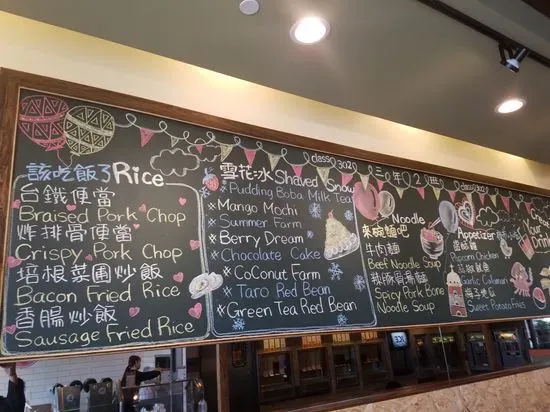 該吃飯了 Rice
台鐵便當
Braised Pork Chop
炸排骨便當
Crispy Pork Chop
培根菜圃炒飯
Bacon Fried Rice
香腸炒飯
Sausage Fried Rice
class302
雪花冰 Shaved Snow
*Pudding Boba Milk Tea
*Mango Mochi
*Summer Farm
*Berry Dream
*Chocolate Cake
*Coconut Farm
*Taro Red Bean
*Green Tea Red Bean
三○年○2班
Noodle
來碗麵吧
牛肉麵
Beef Noodle Soup
Spicy Pork Bone
Noodle Soup
class302
Appetizer
鹽酥雞
Popcorn Chicken
Garlic Calamari
Sweet Potato Fries
Your
Drink